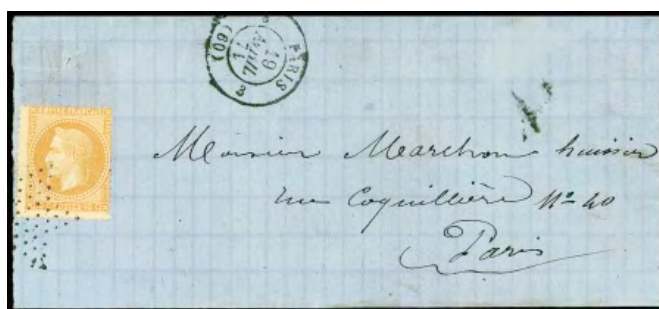 PARIS
(60)
EMPIRE FRANC
Monsieur Marchon huissier
rue Coquillière Nº 40
Paris